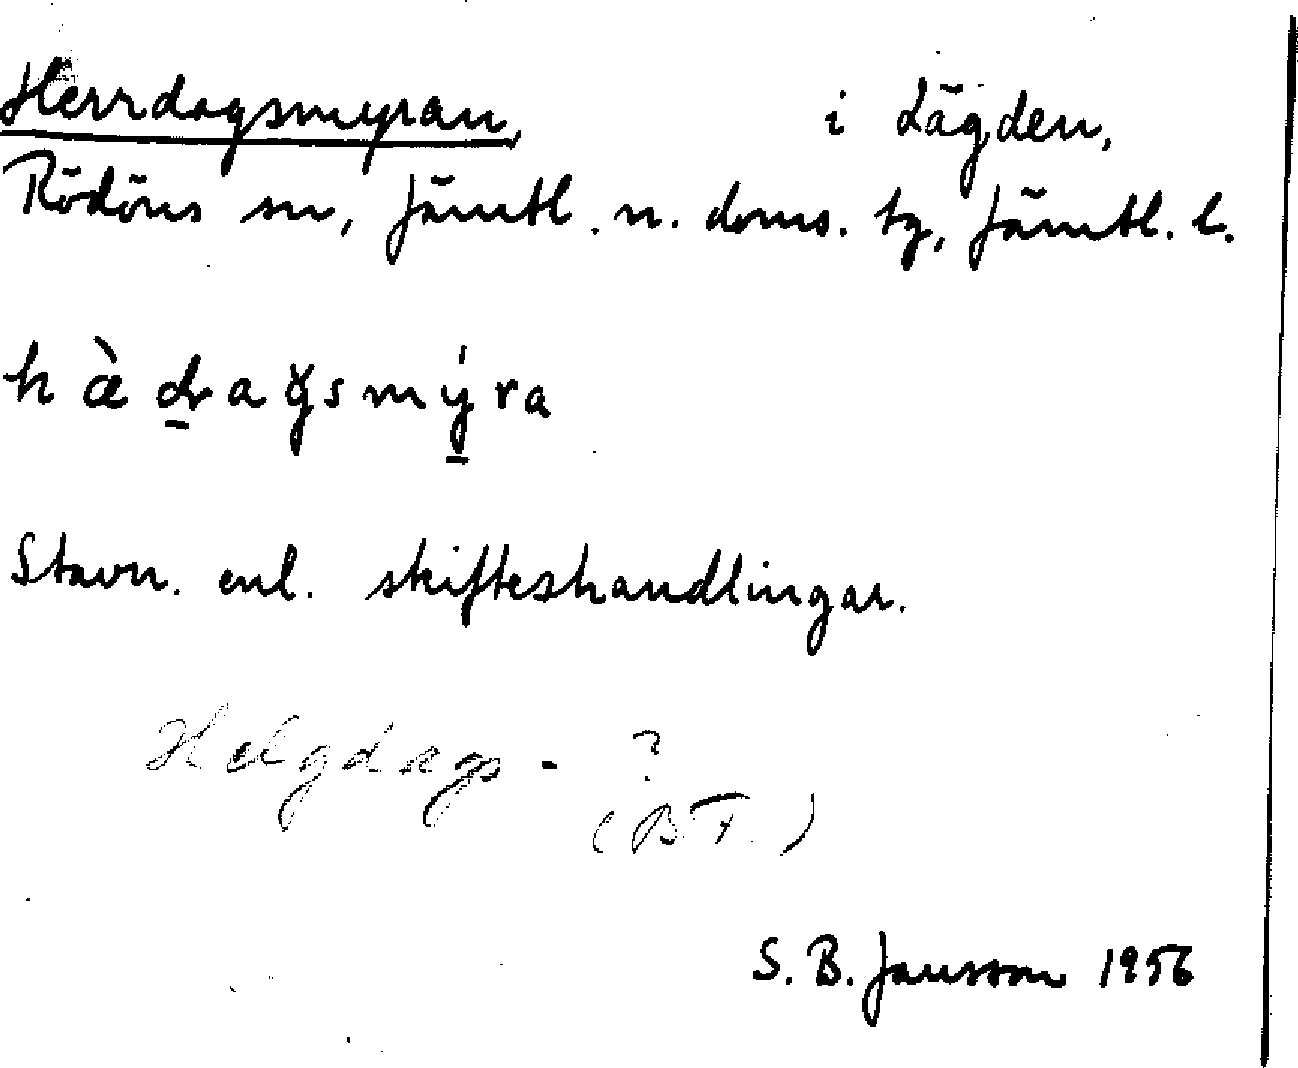 Herrdagsmyran, i Lägden,
Rödöns sn, Jämtl. n. doms. tg, Jämtl. l.
hæ̀d̠aɣsmý̠ra
Stavn. enl. skifteshandlingar.
Helgdags- ?
(B.F.)
S. B. Jansson 1956